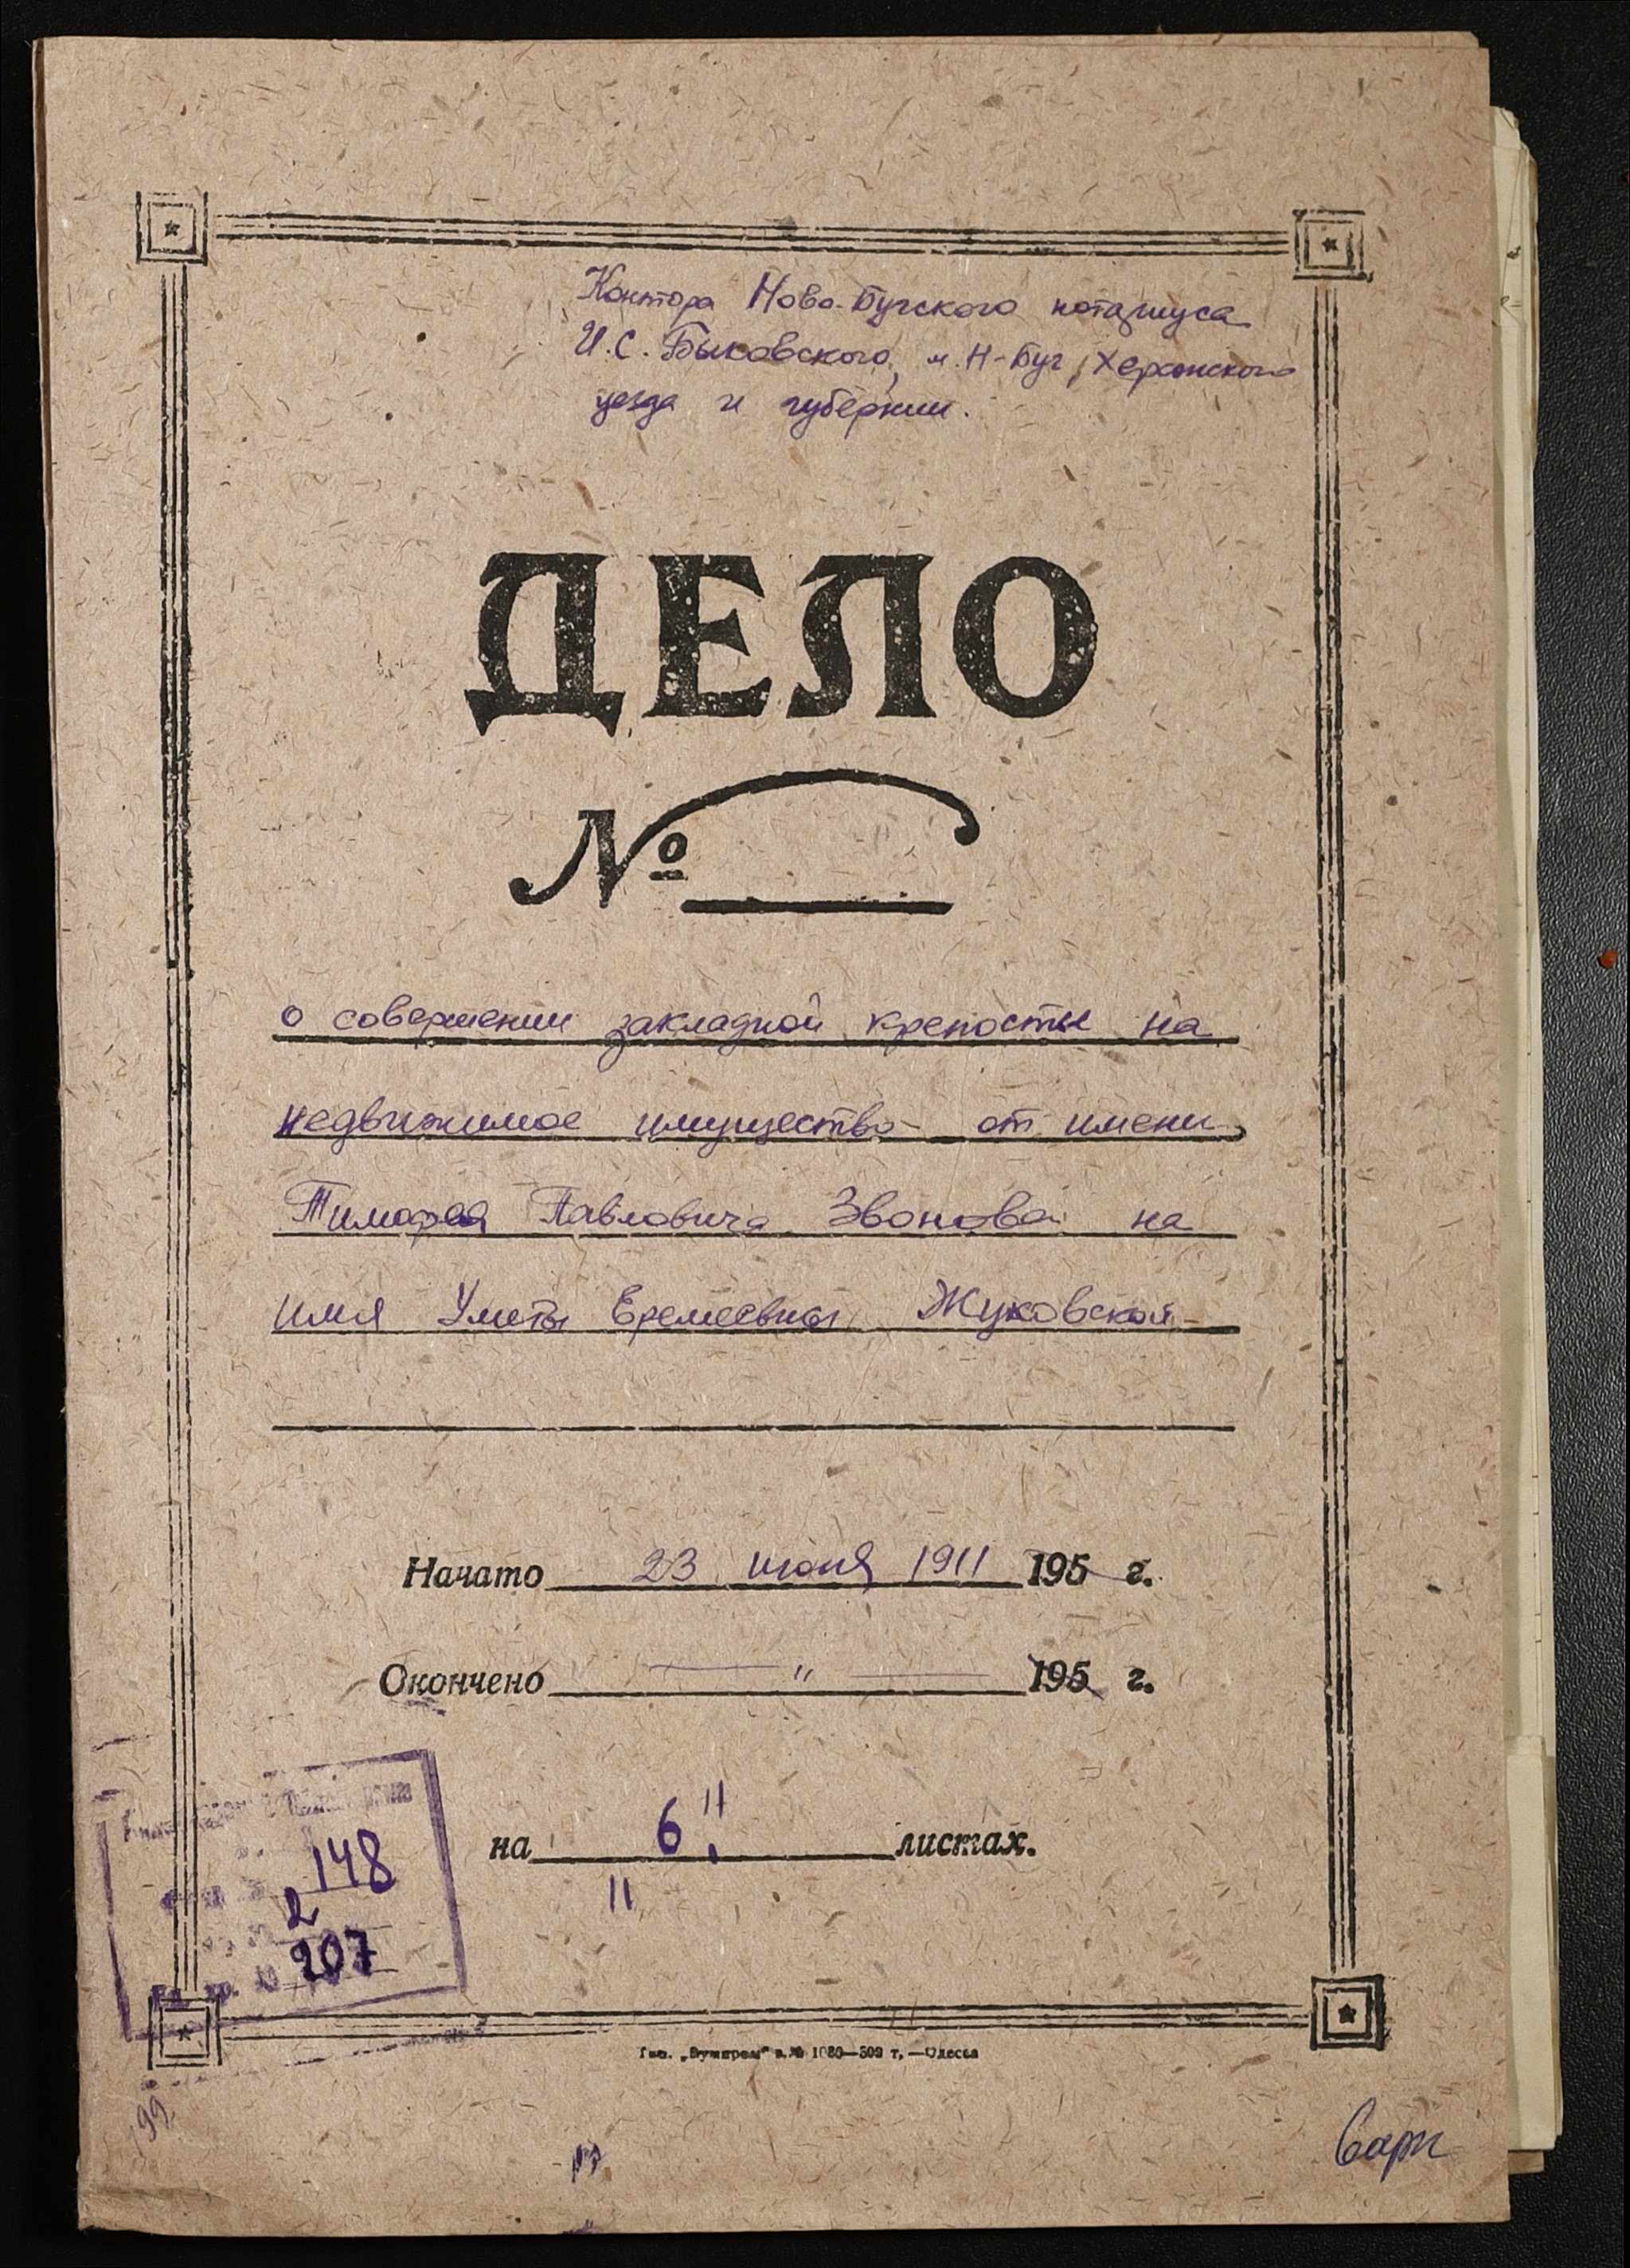 Контора Ново-Бугского нотариуса
И.С. Быковского, м. Н-Буг, Херсонского
уезда и губернии.
ДЕЛО
№
о совершении закладной крепости на
недвижимое имущество от имени
Тимофея Павловича Звонова на
имя Еремеевны Жуковской
Начато 23 июня 1911 195 г.
Окончено — " — 195 г.
на 6 листах.
11
148
2
207
Одесса
199